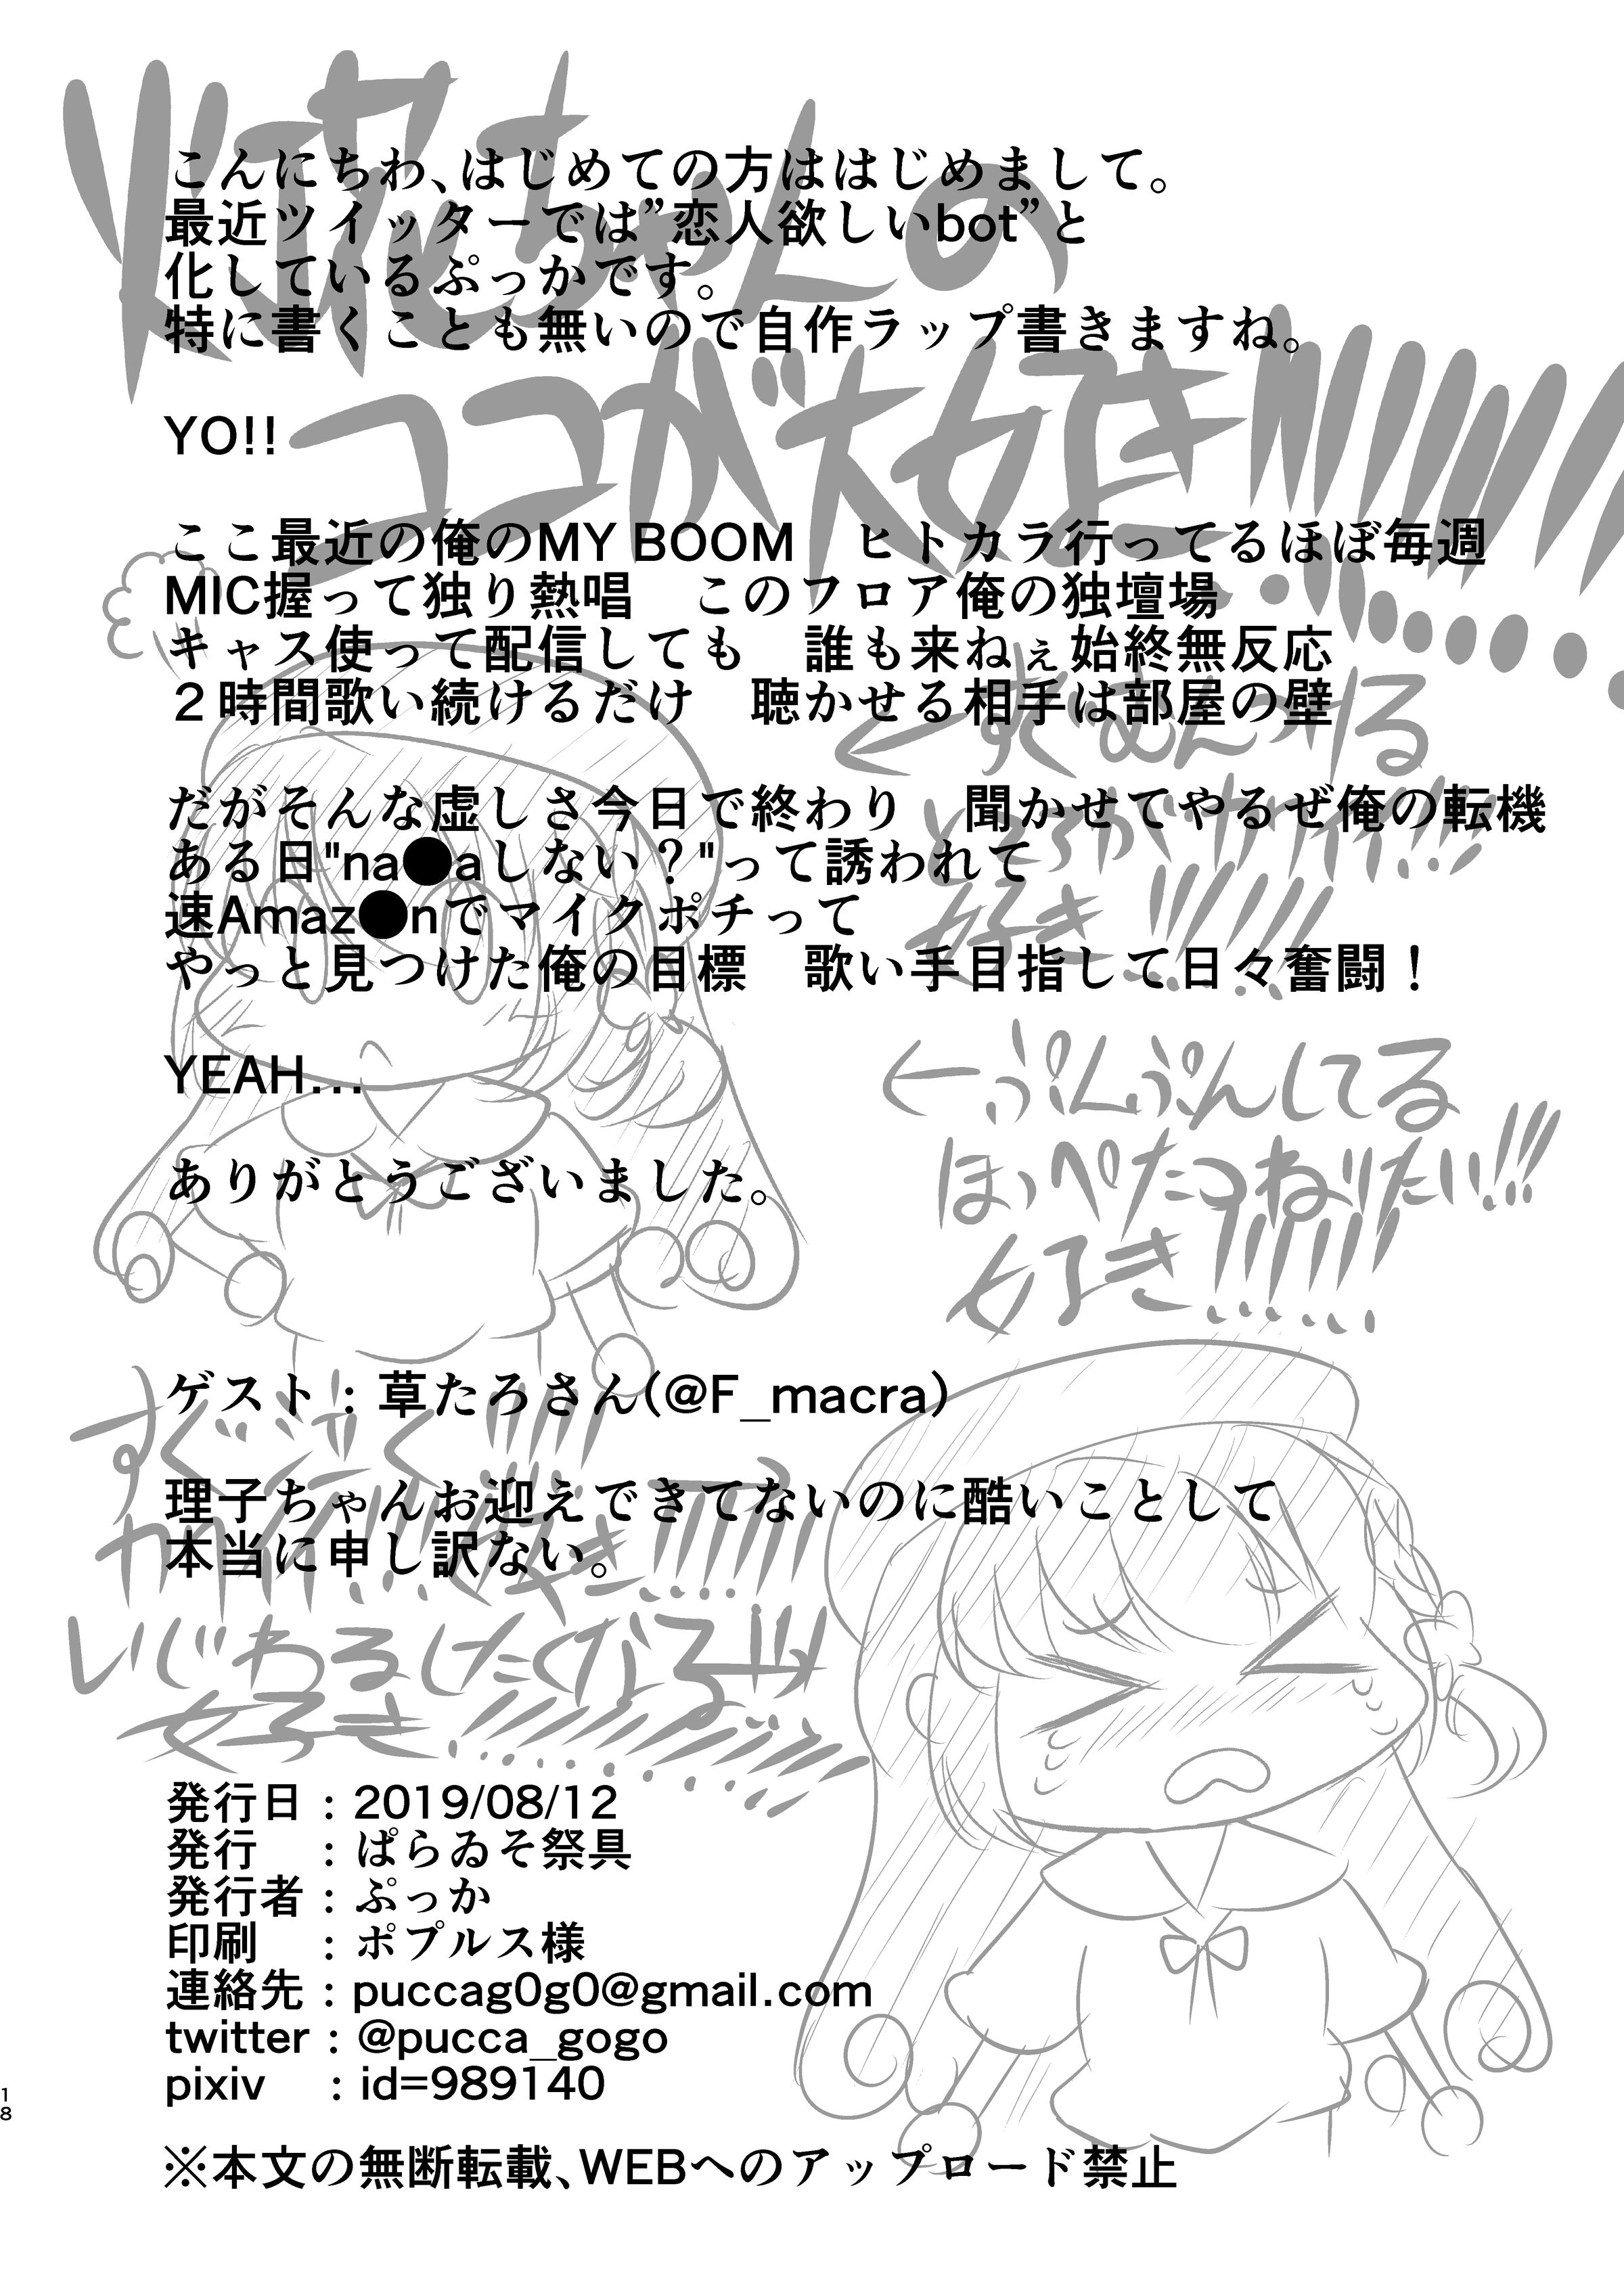 火花ちゃんの
ココが大好き!!!!!!!!!!
こんにちわ、はじめての方ははじめまして。
最近ツイッターでは”恋人欲しいbot”と
化しているぷっかです。
特に書くことも無いので自作ラップ書きますね。
YO!!
ここ最近の俺のMY BOOM　ヒトカラ行ってるほぼ毎週
MIC握って独り熱唱　このフロア俺の独壇場
キャス使って配信しても　誰も来ねぇ始終無反応
２時間歌い続けるだけ　聴かせる相手は部屋の壁
だがそんな虚しさ今日で終わり　聞かせてやるぜ俺の転機
ある日"na●aしない？"って誘われて
速Amaz●nでマイクポチって
やっと見つけた俺の目標　歌い手目指して日々奮闘！
YEAH…
ありがとうございました。
←すぐむくれる
ところがカワイイ!!!
好き!!!!!!
←ぷんぷんしてる
ほっぺたつねりたい!!!
好き!!!!!!
ゲスト：草たろさん(@F_macra)
理子ちゃんお迎えできてないのに酷いことして
本当に申し訳ない。
すぐ泣く!!!!!
カワイイ!!!好き!!!!!!
いじわるしたくなる!!!
好き!!!!!!!!!!
発行日：2019/08/12
発行　：ぱらゐそ祭具
発行者：ぷっか
印刷　：ポプルス様
連絡先：puccag0g0@gmail.com
twitter：@pucca_gogo
pixiv　：id=989140
※本文の無断転載、WEBへのアップロード禁止
18